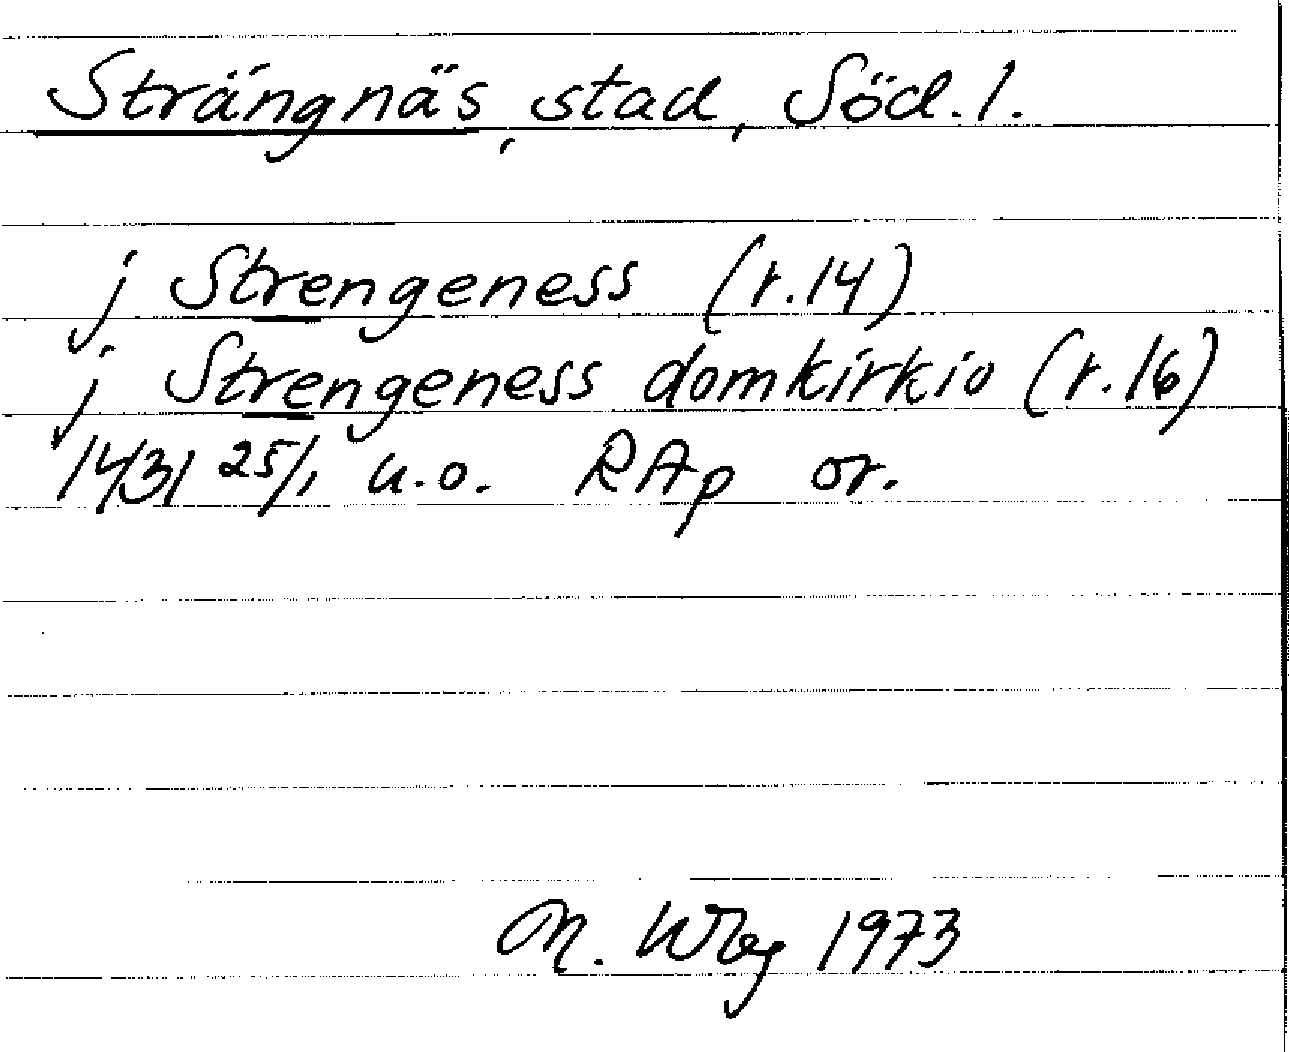 Strängnäs, stad, Söd.l.
j Strengeness (r.14)
j Strengeness domkirkio (r.16)
1431 25/1 u.o. RAp or.
M. Wbg 1973